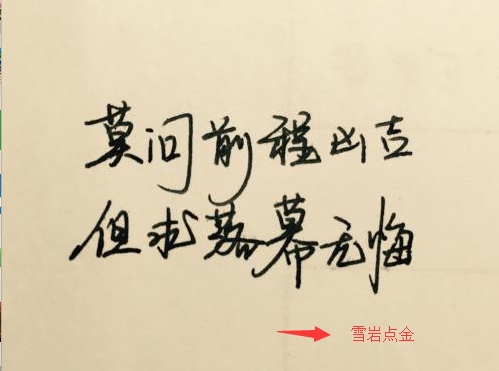 莫问前程凶吉
但求落幕无悔
雪岩点金